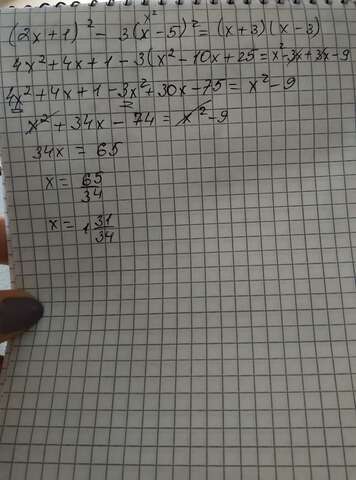 (2x+1)² - 3(x-5)² = (x+3)(x-3)
x²
4x²+4x+1-3(x²-10x+25=x²-3x+3x-9
4x²+4x+1-3x²+30x-75=x²-9
x²+34x-74=x²-9
34x = 65
x = 65/34
x = 1 31/34